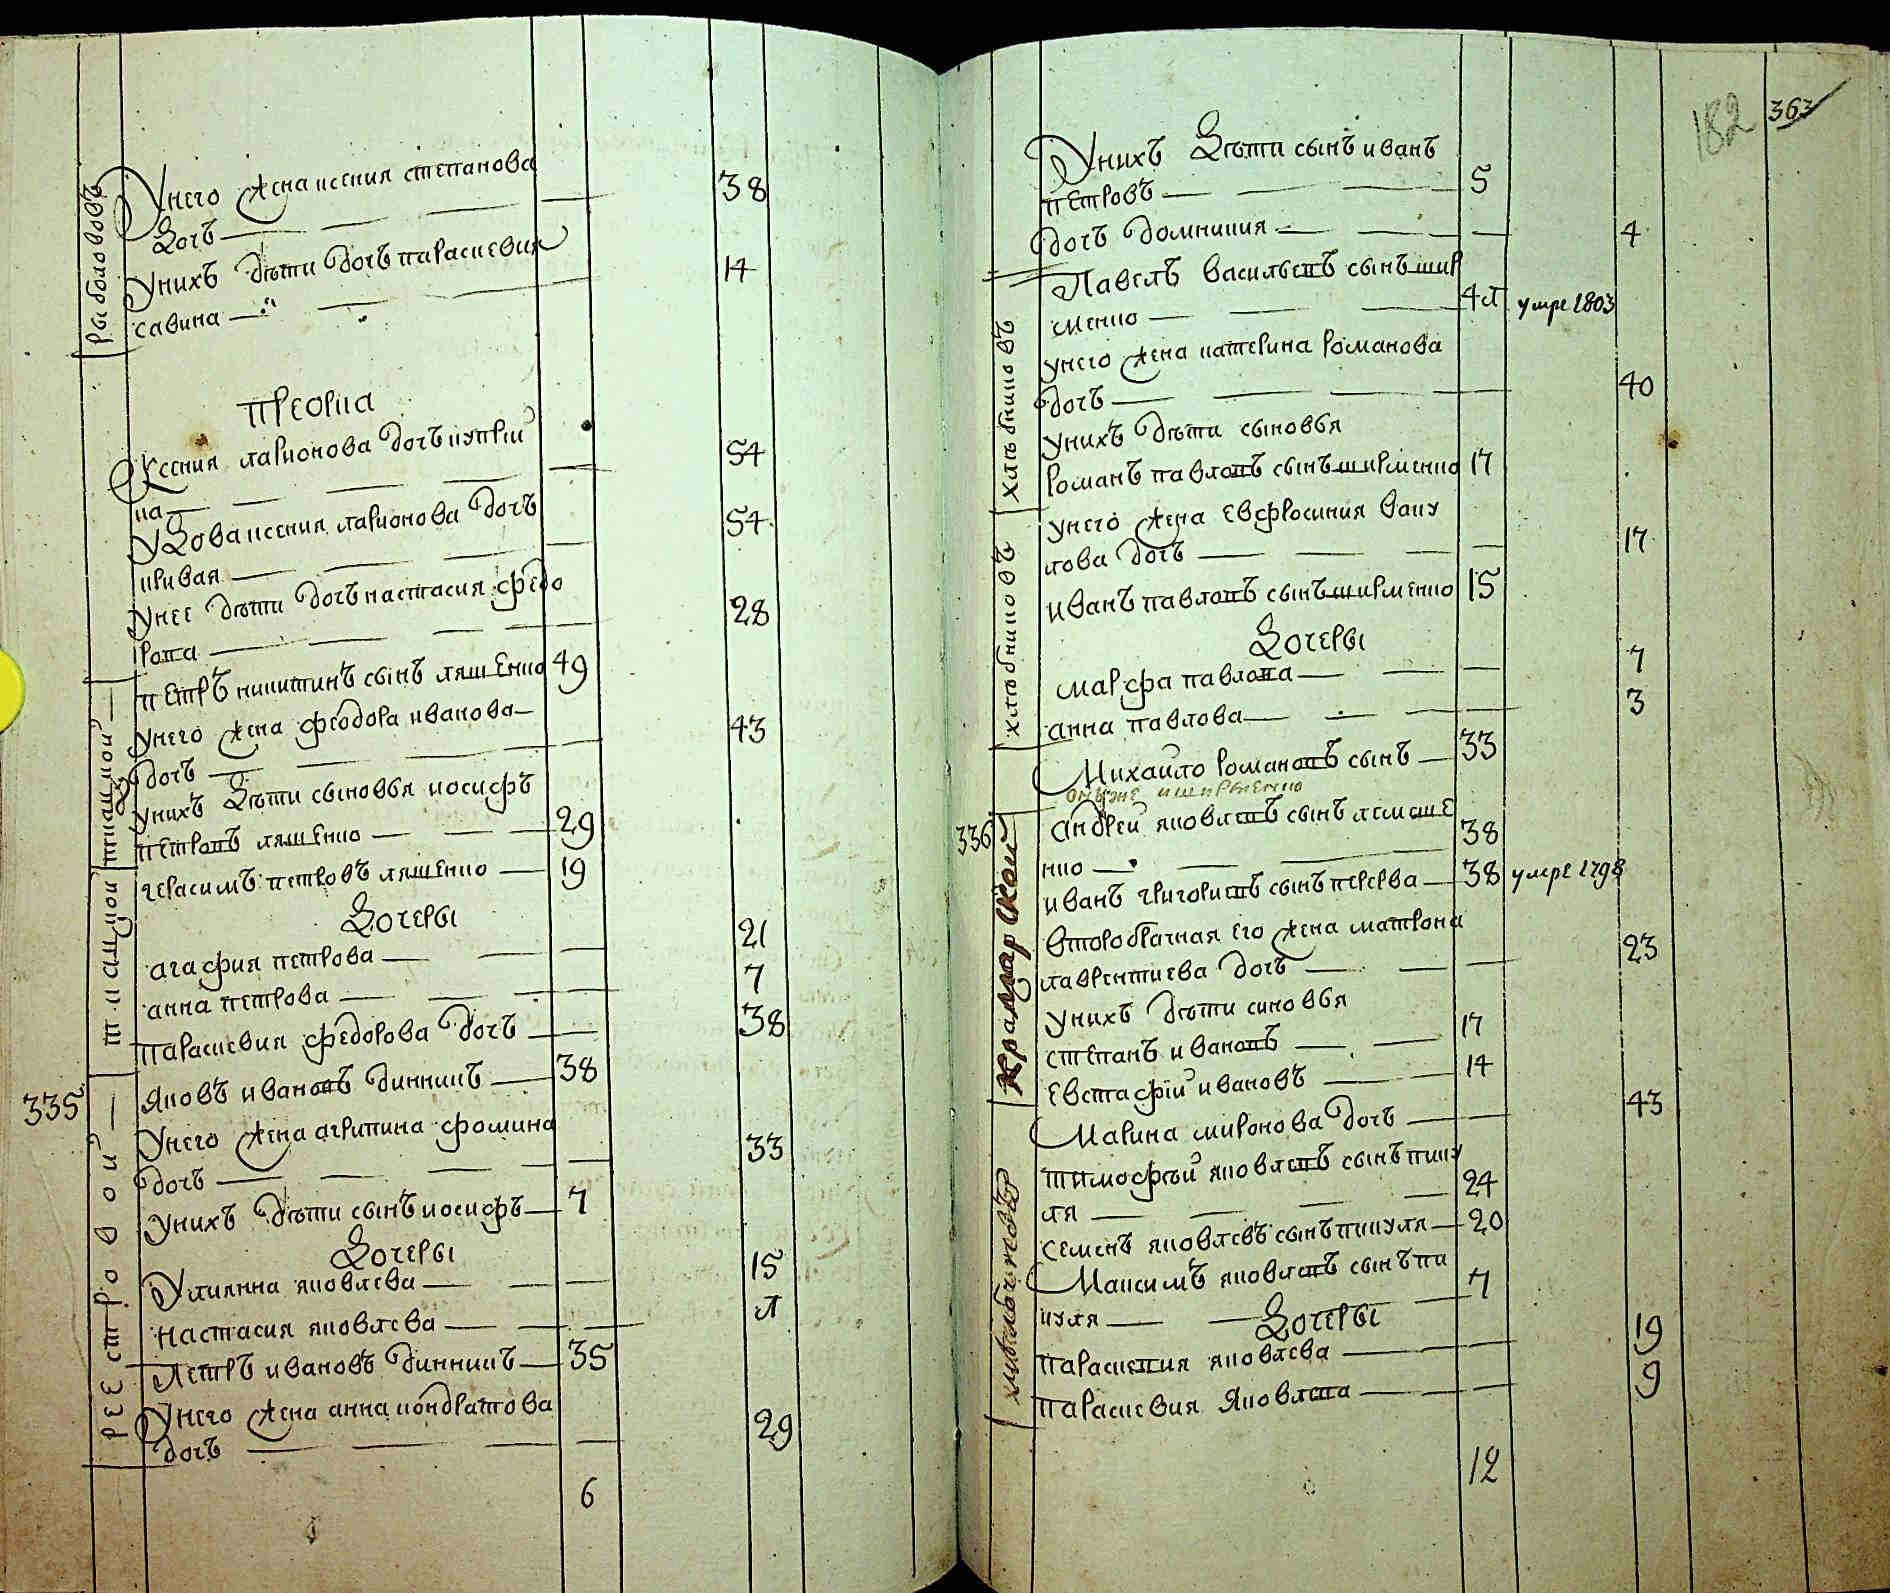 Рыболововъ
Унего жена ксения степанова
Дочъ 38
Унихъ дѣти дочъ параскевия
савина 14
ксения ларионова дочъ
54
Удова ксения ларионова дочъ
кривая 54
Унее дѣти дочъ настасия федо
рова 28
петръ никитинъ сынъ ляшенко 49
унего жена феодора иванова
дочъ 43
унихъ дѣти сыновья иосифъ
петровъ ляшенко 29
герасимъ петровъ ляшенко 19
Дочеры
агафия петрова 21
анна петрова 7
параскевия федорова дочъ 38
335
реестровой
яковъ ивановъ динникъ 38
Унего жена агрипина фомина
дочъ 33
унихъ дѣти сынъ иосифъ 7
Дочеры
Улиянна яковлева 15
настасия яковлева л
Петръ ивановъ динникъ 35
Унего жена анна кондратова
дочъ 29
6
182 363
Унихъ Дѣти сынъ иванъ
петровъ 5
дочъ домникия 4
Павелъ васильевъ сынъ шир
менко 4л умре 1803
унего жена катерина романова
дочъ 40
унихъ дѣти сыновья
романъ павловъ сынъ ширменко 17
унего жена евфросиния ваку
лова дочъ 17
иванъ павловъ сынъ ширменко 15
Дочеры
марфа павлова 7
анна павлова 3
Михайло романовъ сынъ 33
онже ширменко
336
андрей яковлевъ сынъ лемеше
нко 38
иванъ григориевъ сынъ перерва 38 умре 1798
второбрачная его жена матрона
лаврентиева дочъ 23
унихъ дѣти синовья
степанъ ивановъ 17
евстафiй ивановъ 14
Марина миронова дочъ 43
тимофѣй яковлевъ сынъ пику
ля 24
семенъ яковлевъ сынъ пикуля 20
Максимъ яковлевъ сынъ пи
куля 7
Дочеры
параскевия яковлева 19
параскевия Яковлева 9
12